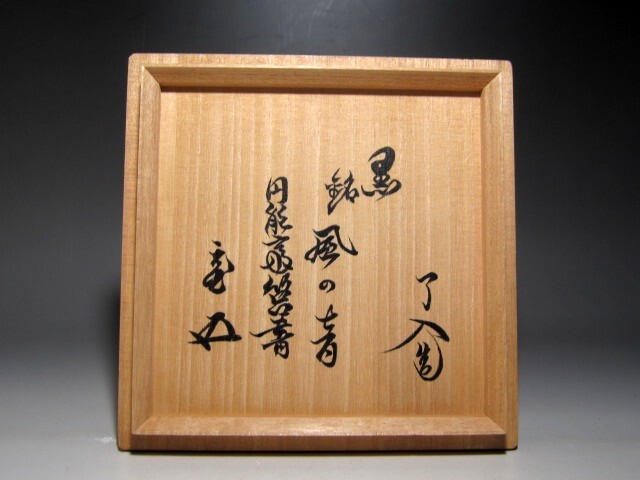 了入造
黒
銘 風の音
円能斎 書